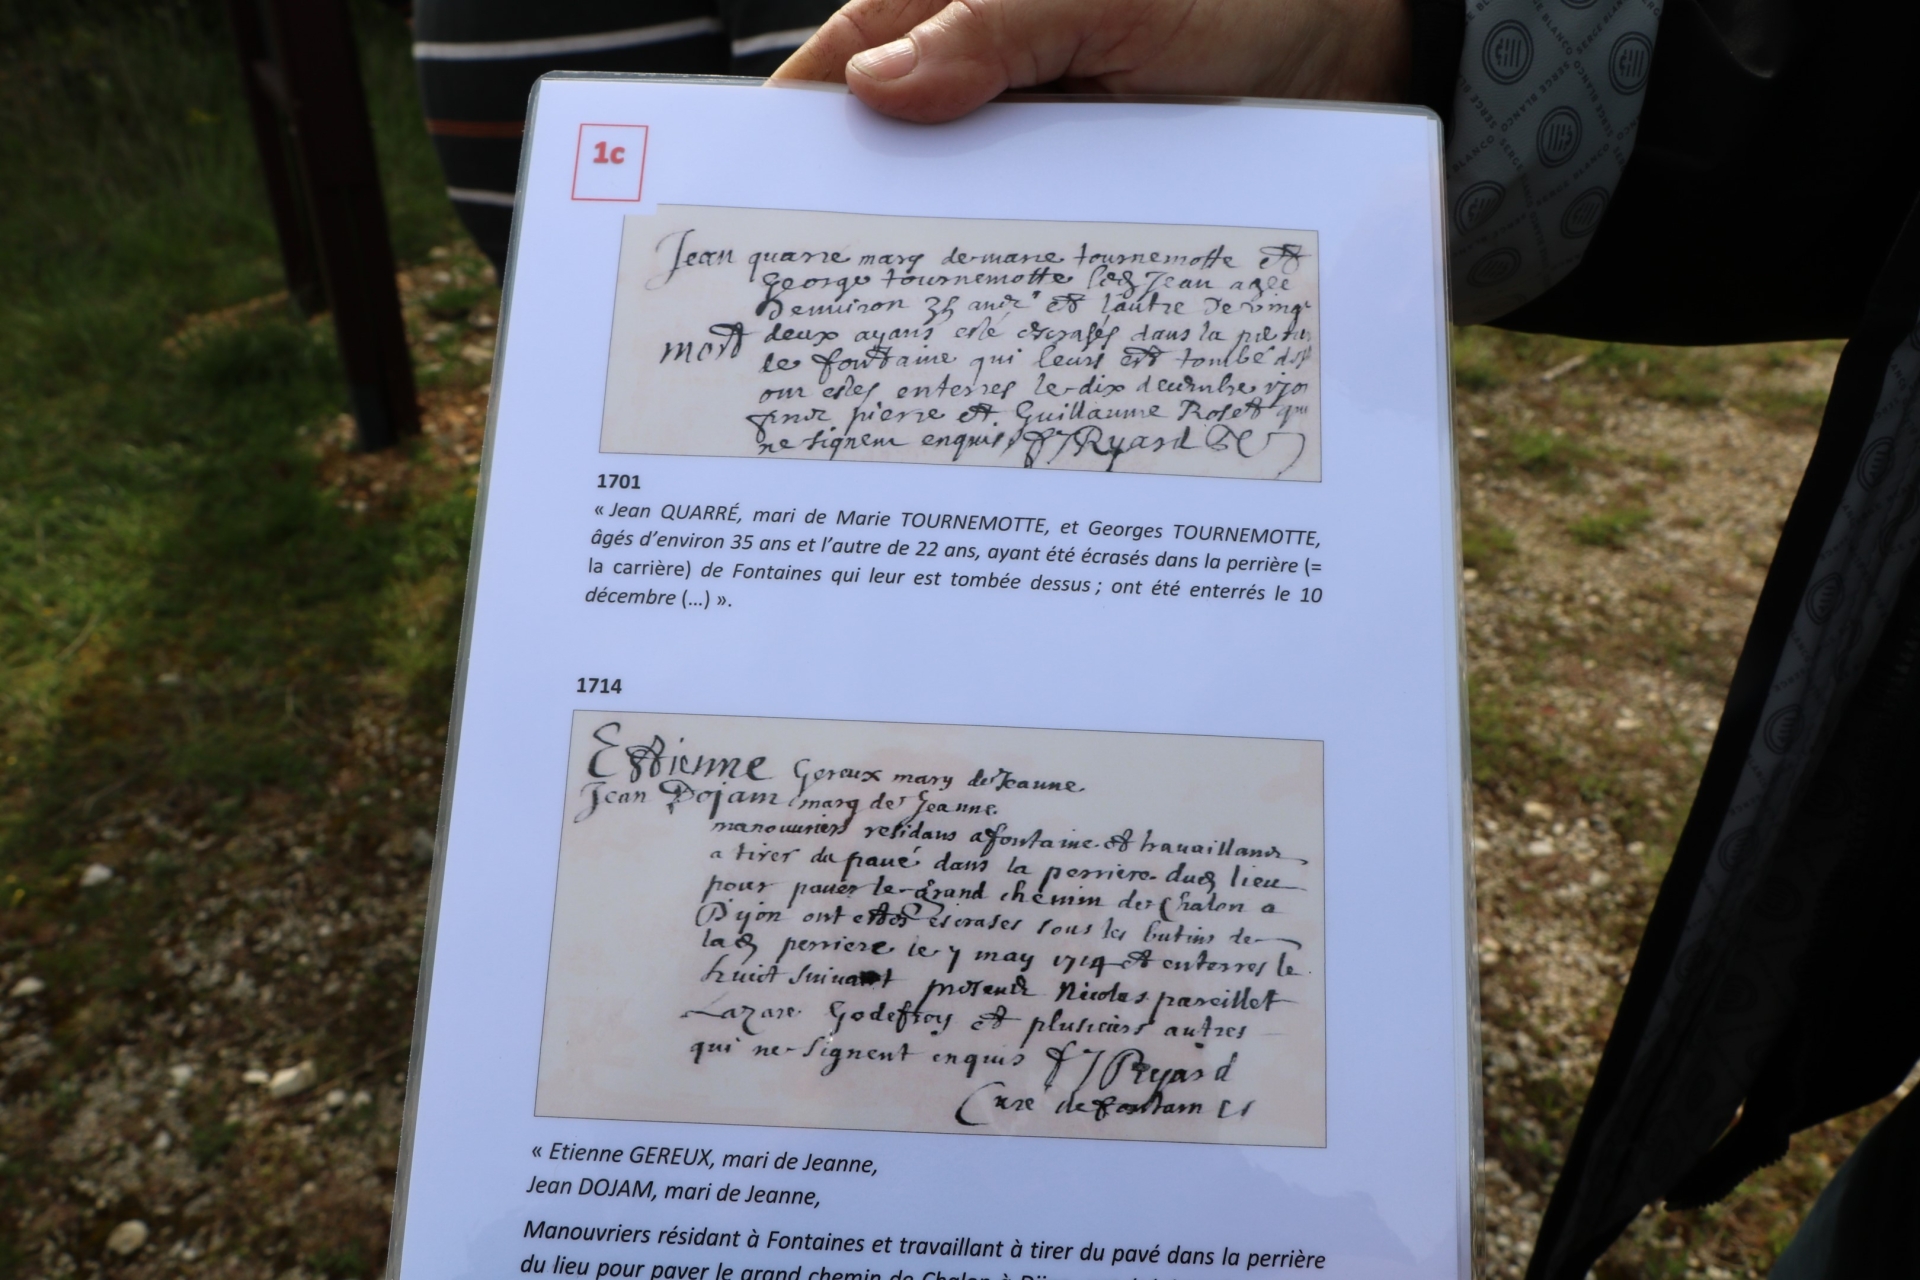 1c
Jean quarre mary de marie tournemotte et
George tournemotte led Jean agee
Denuiron 35 et lautre De vingt
deux ayans esté escrasés dans la
mort
de fontaine qui leurs est tombé
ont estes enterres le dix decembre
pierre et Guillaume Roset qui
ne signent enquis Ryard
1701
« Jean QUARRÉ, mari de Marie TOURNEMOTTE, et Georges TOURNEMOTTE,
âgés d’environ 35 ans et l’autre de 22 ans, ayant été écrasés dans la perrière (=
la carrière) de Fontaines qui leur est tombée dessus ; ont été enterrés le 10
décembre (…) ».
1714
Estienne Gereux mary de Jeanne
Jean Dojam mary de Jeanne
manouuriers residans a fontaine et trauaillans
a tirer du paué dans la perriere dud lieu
pour pauer le grand chemin de Chalon a
Dijon ont estes escrases sous les butins de
lad perriere le 7 may 1714 et enterres le
huict suivant Nicolas pareillet
Lazare Godefroy et plusieurs autres
qui ne signent enquis Ryard
Curé de fontaines
« Etienne GEREUX, mari de Jeanne,
Jean DOJAM, mari de Jeanne,
Manouvriers résidant à Fontaines et travaillant à tirer du pavé dans la perrière
du lieu pour paver le grand chemin de Chalon à
SERGE BLANCO